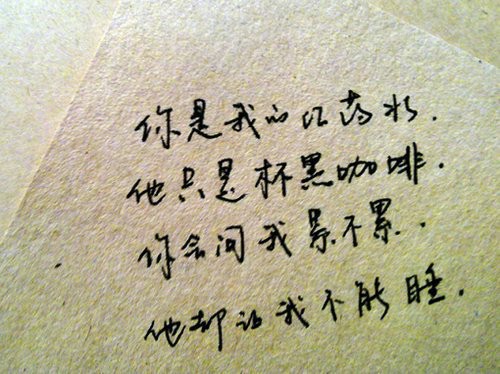 你是我的红药水.
他只是杯黑咖啡.
你会问我累不累.
他却让我不能睡.